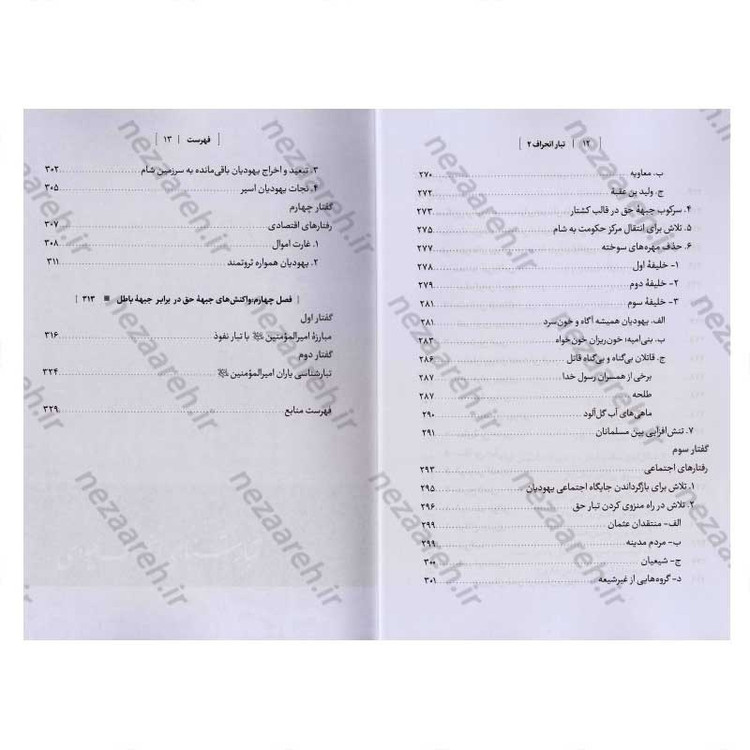 ۱۲ | تبار انحراف ۲
ب. معاویه ۲۷۰
ج. ولید بن عقبة ۲۷۲
۴. سرکوب جبههٔ حق در قالب کشتار ۲۷۳
۵. تلاش برای انتقال مرکز حکومت به شام ۲۷۵
۶. حذف مهره‌های سوخته ۲۷۷
۱- خلیفهٔ اول ۲۷۸
۲- خلیفهٔ دوم ۲۷۹
۳- خلیفهٔ سوم ۲۸۱
الف. یهودیان همیشه آگاه و خون‌سرد ۲۸۱
ب. بنی‌امیه؛ خون‌ریزان خون‌خواه ۲۸۳
ج. قاتلان بی‌گناه و بی‌گناه قاتل ۲۸۶
برخی از همسران رسول خدا ۲۸۷
طلحه ۲۸۷
ماهی‌های آب گل‌آلود ۲۹۰
۷. تنش‌افزایی بین مسلمانان ۲۹۱
گفتار سوم
رفتارهای اجتماعی ۲۹۳
۱. تلاش برای بازگرداندن جایگاه اجتماعی یهودیان ۲۹۵
۲. تلاش در راه منزوی کردن تبار حق ۲۹۶
الف- منتقدان عثمان ۲۹۹
ب- مردم مدینه ۲۹۹
ج- شیعیان ۳۰۰
د- گروه‌هایی از غیرشیعه ۳۰۱
فهرست | ۱۳
۳. تبعید و اخراج یهودیان باقی‌مانده به سرزمین شام ۳۰۲
۴. نجات یهودیان اسیر ۳۰۵
گفتار چهارم
رفتارهای اقتصادی ۳۰۷
۱. غارت اموال ۳۰۸
۲. یهودیان همواره ثروتمند ۳۱۱
فصل چهارم: واکنش‌های جبههٔ حق در برابر جبههٔ باطل ■ ۳۱۳
گفتار اول
مبارزهٔ امیرالمؤمنین با تیار نفوذ ۳۱۶
گفتار دوم
تبارشناسی یاران امیرالمؤمنین ۳۲۴
فهرست منابع ۳۲۹
nezaareh.ir